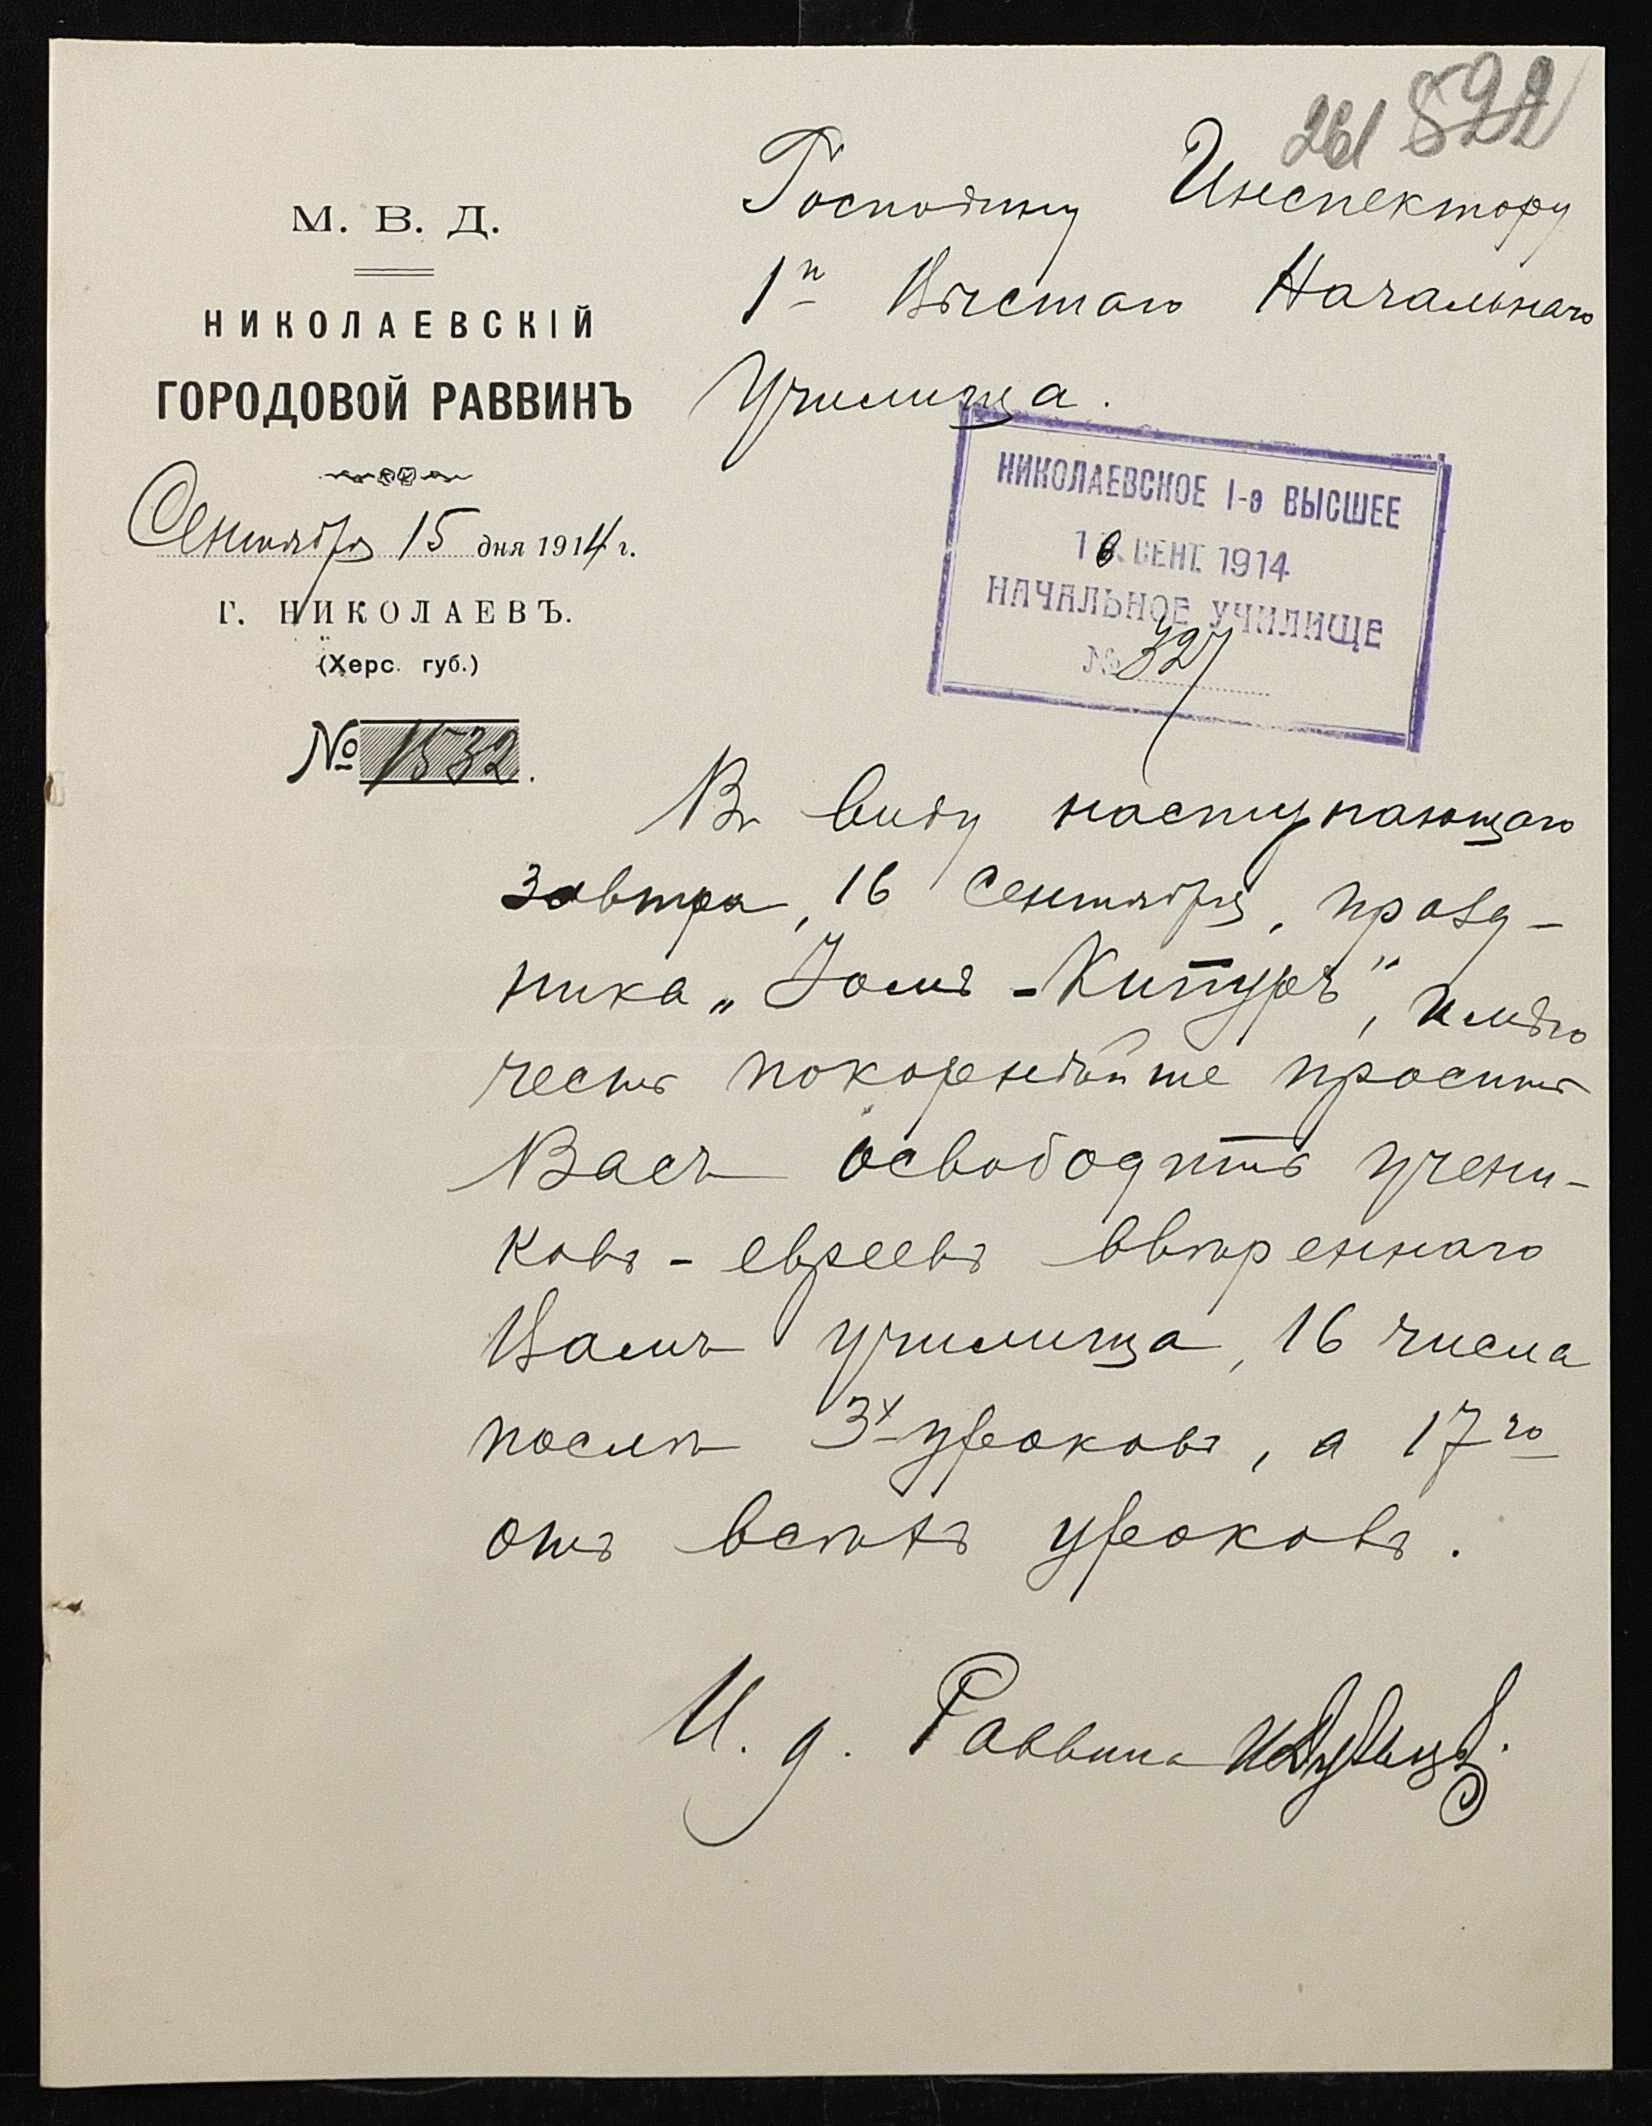 261 522
М. В. Д.
НИКОЛАЕВСКІЙ
ГОРОДОВОЙ РАВВИНЪ
Сентября 15 дня 1914 г.
Г. НИКОЛАЕВЪ.
(Херс. губ.)
№ 1532.
Господину Инспектору
1го Высшаго Начальнаго
Училища.
НИКОЛАЕВСКОЕ 1-е ВЫСШЕЕ
16 СЕНТ. 1914
НАЧАЛЬНОЕ УЧИЛИЩЕ
№ 327
Въ виду наступающаго
завтра, 16 Сентября, празд-
ника „Іомъ-Кипуръ", имѣю
честь покорнѣйше просить
Васъ освободить учени-
ковъ-евреевъ ввѣреннаго
Вамъ училища, 16 числа
послѣ 3х уроковъ, а 17го
отъ всѣхъ уроковъ.
И. д. Раввина